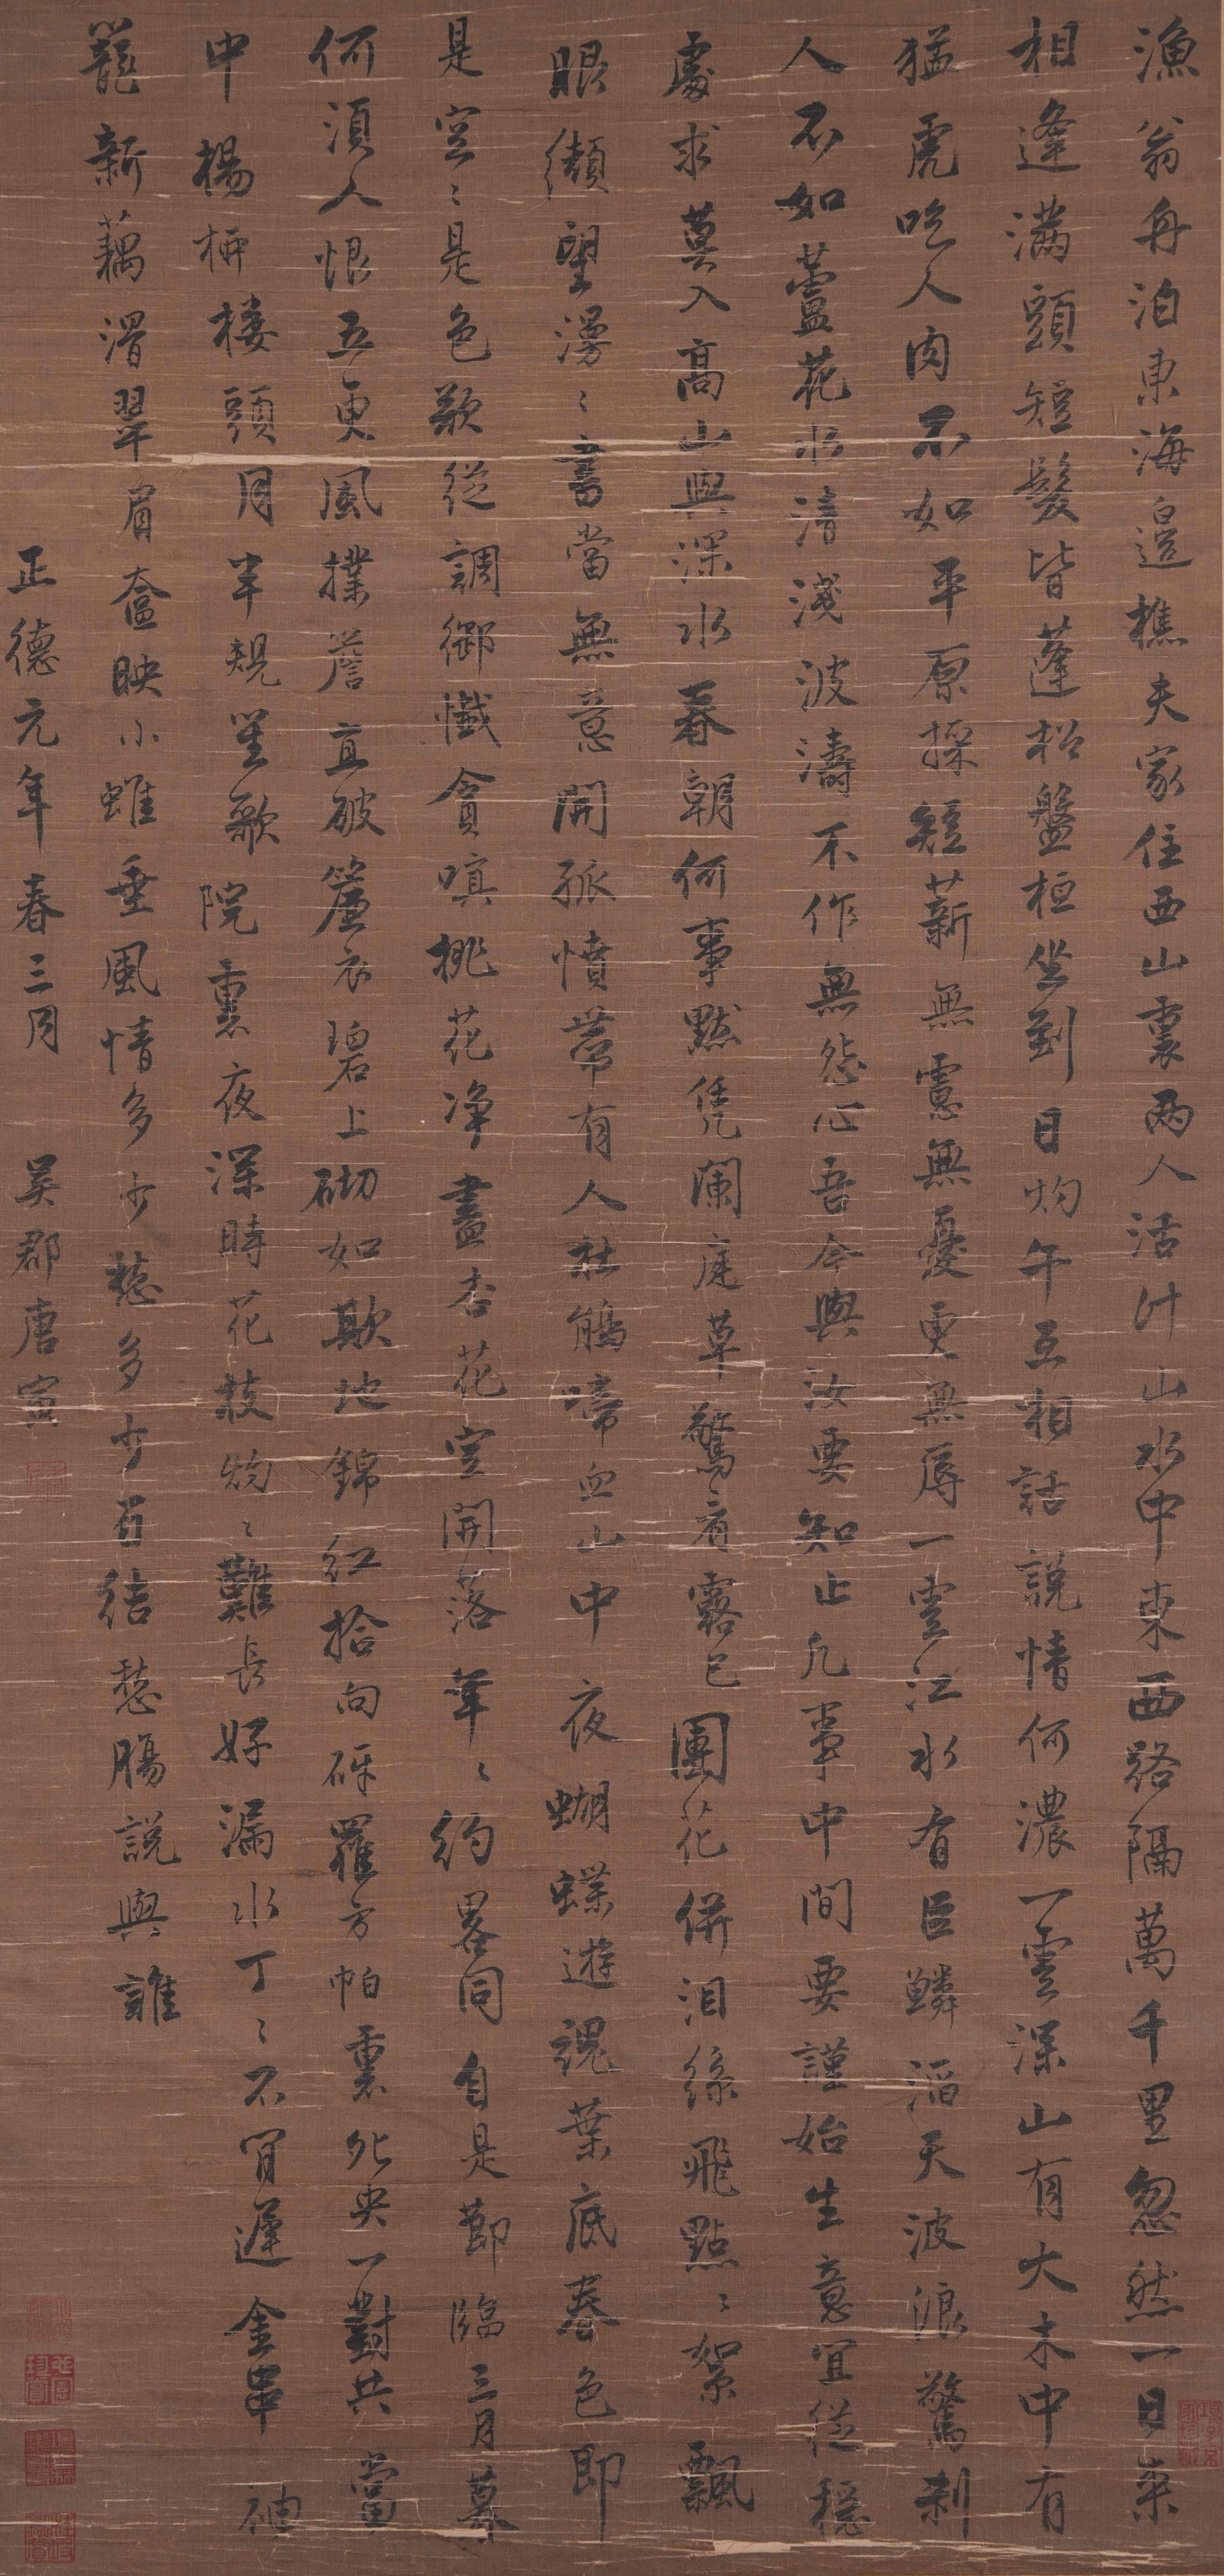 漁翁舟泊東海邊樵夫家住西山裏兩人活計山水中東西路隔萬千里忽然一日來
相逢滿頭短髮皆蓬松盤桓坐到日灼午互相話說情何濃一云深山有大木中有
猛虎吃人肉不如平原採短薪無慮無憂更無辱一云江水有巨鱗滔天波浪驚刹
人不如蘆花水清淺波濤不作無怨心吾今與汝要知止凡事中間要謹始生意宜從穩
處求莫入高山與深水春朝何事默凭闌庭草驚看露已團花併泪絲飛點〻絮飄
眼纈望漫〻書當無意開孤憤帶有人社觴啼血山中夜蝴蝶遊魂葉底春色即
是空〻是色欲從調御懺貪嗔桃花淨盡杏花空開落年〻約畧同自是節臨三月暮
何須人恨五更風撲簷直破簾衣碧上砌如欺地錦紅拾向砑羅方帕裏鴛央一對共當
中楊柳樓頭月半規笙歌院裏夜深時花枝灼〻難長好漏水丁〻不肯遲金串袖
籠新藕滑翠眉奩映小蛾垂風情多少愁多少百結愁腸說與誰
正德元年春三月 吳郡唐寅